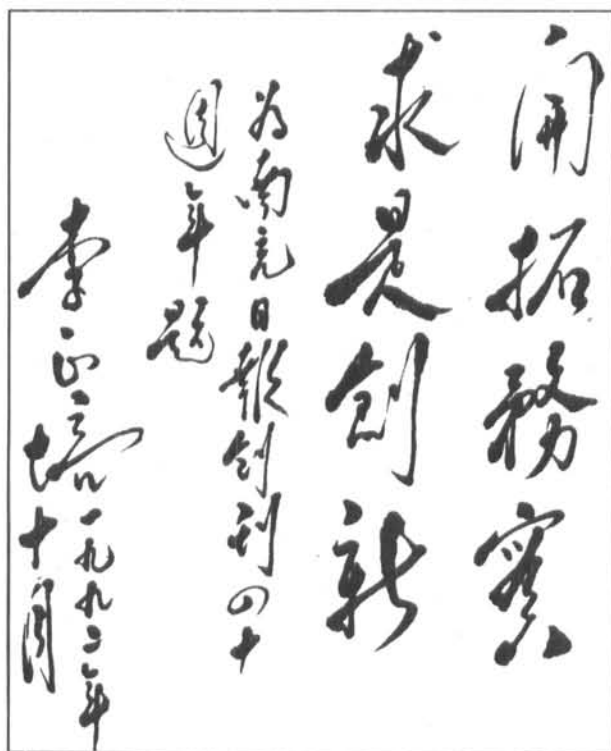 開拓務實
求是創新
为南充日報創刊四十
週年題
李正培
一九九二年
十月